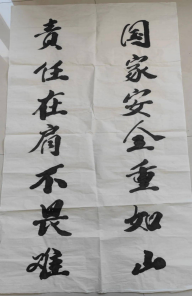 国家安全重如山
責任在肩不畏难